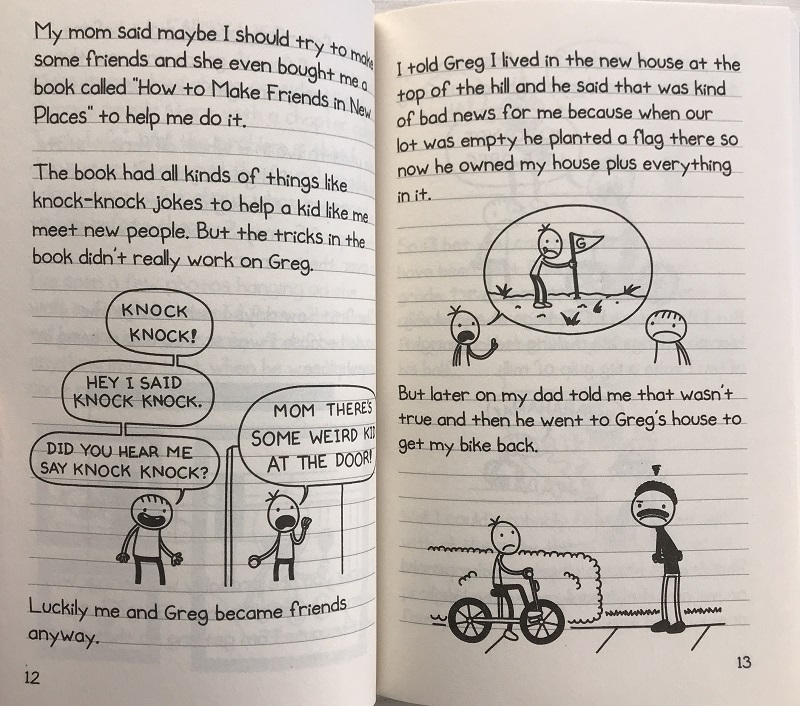 My mom said maybe I should try to make
some friends and she even bought me a
book called "How to Make Friends in New
Places" to help me do it.
The book had all kinds of things like
knock-knock jokes to help a kid like me
meet new people. But the tricks in the
book didn't really work on Greg.
KNOCK
KNOCK!
HEY I SAID
KNOCK KNOCK.
DID YOU HEAR ME
SAY KNOCK KNOCK?
MOM THERE'S
SOME WEIRD KID
AT THE DOOR!
Luckily me and Greg became friends
anyway.
12
I told Greg I lived in the new house at the
top of the hill and he said that was kind
of bad news for me because when our
lot was empty he planted a flag there so
now he owned my house plus everything
in it.
G
But later on my dad told me that wasn't
true and then he went to Greg's house to
get my bike back.
13